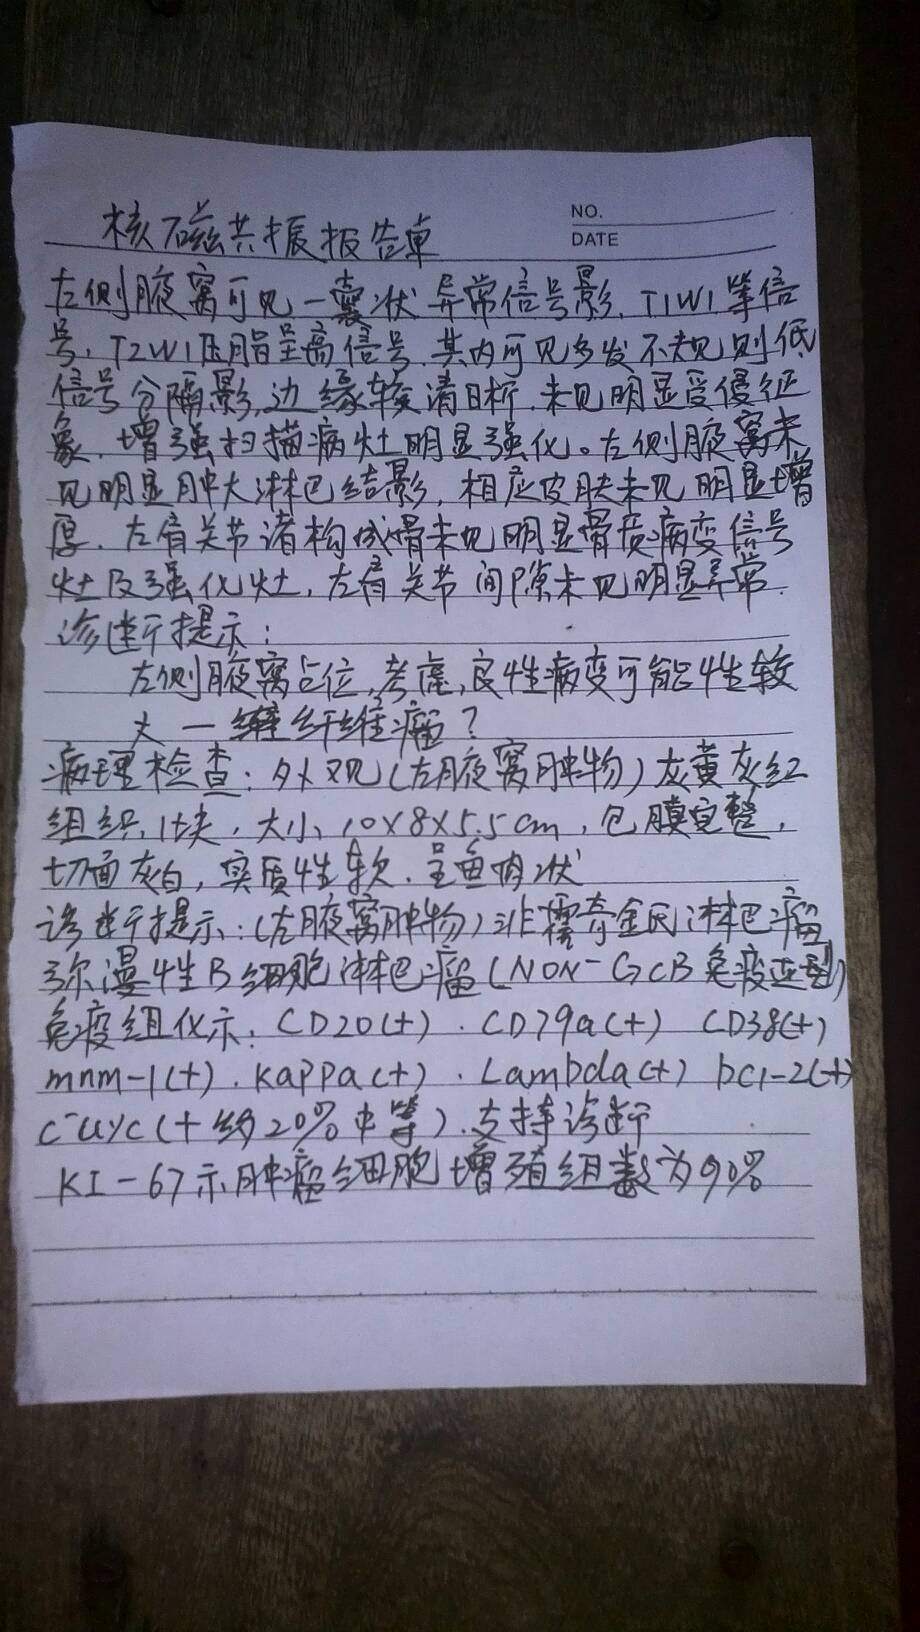 NO.
DATE
核磁共振报告单
左侧腋窝可见一囊状异常信号影,T1W1等信
号,T2W1压脂呈高信号.其内可见多发不规则低
信号分隔影,边缘较清晰.未见明显受侵征
象.增强扫描病灶明显强化。左侧腋窝未
见明显肿大淋巴结影,相应皮肤未见明显增
厚.左肩关节诸构成骨未见明显骨质病变信号
灶及强化灶,左肩关节间隙未见明显异常.
诊断提示:
左侧腋窝占位,考虑,良性病变可能性较
大一纤维瘤?
病理检查:外观(左腋窝肿物)灰黄灰红
组织1块,大小10X8X5.5cm,包膜完整,
切面灰白,实质性软.呈鱼肉状
诊断提示:(左腋窝肿物)非霍奇金氏淋巴瘤
弥漫性B细胞淋巴瘤(NON-GCB免疫亚型)
免疫组化示:CD20(+).CD79a(+) CD38(+)
mnm-1(+).Kappa(+).Lambda(+) bcl-2(+)
C-uyc(+约20%中等).支持诊断
KI-67示肿瘤细胞增殖组数为90%